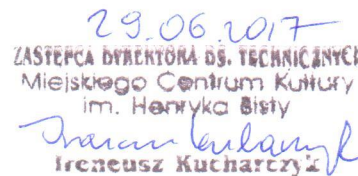 29.06.2017
ZASTĘPCA DYREKTORA DS. TECHNICZNYCH
Miejskiego Centrum Kultury
im. Henryka Bisty
Ireneusz Kucharczyk